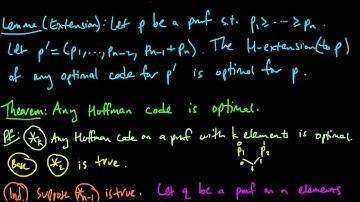 Lemma (Extension): Let p be a pmf s.t. p₁ ≥ ⋯ ≥ pₙ.
Let p' = (p₁, ..., pₙ₋₂, pₙ₋₁ + pₙ). The H-extension (to p)
of any optimal code for p' is optimal for p.
Theorem: Any Huffman code is optimal.
Pf: (*ₖ) Any Huffman code on a pmf with k elements is optimal.
p₁ p₂
Base *₂ is true.
Ind. Suppose *ₙ₋₁ is true. Let q be a pmf on n elements